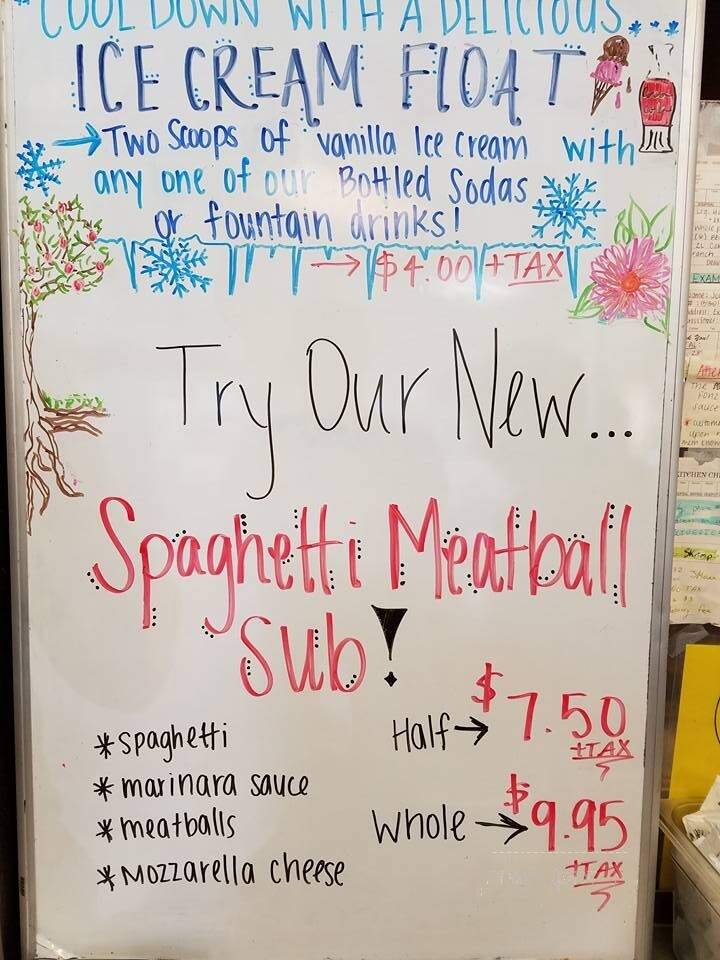 COOL DOWN WITH A DELICIOUS
ICE CREAM FLOAT
→ Two Scoops of vanilla Ice Cream with
any one of our Bottled Sodas
or fountain drinks!
→ $4.00 + TAX
Try Our New...
Spaghetti Meatball
Sub!
* spaghetti
* marinara sauce
* meatballs
* Mozzarella cheese
Half → $7.50
+TAX
Whole → $9.95
+TAX